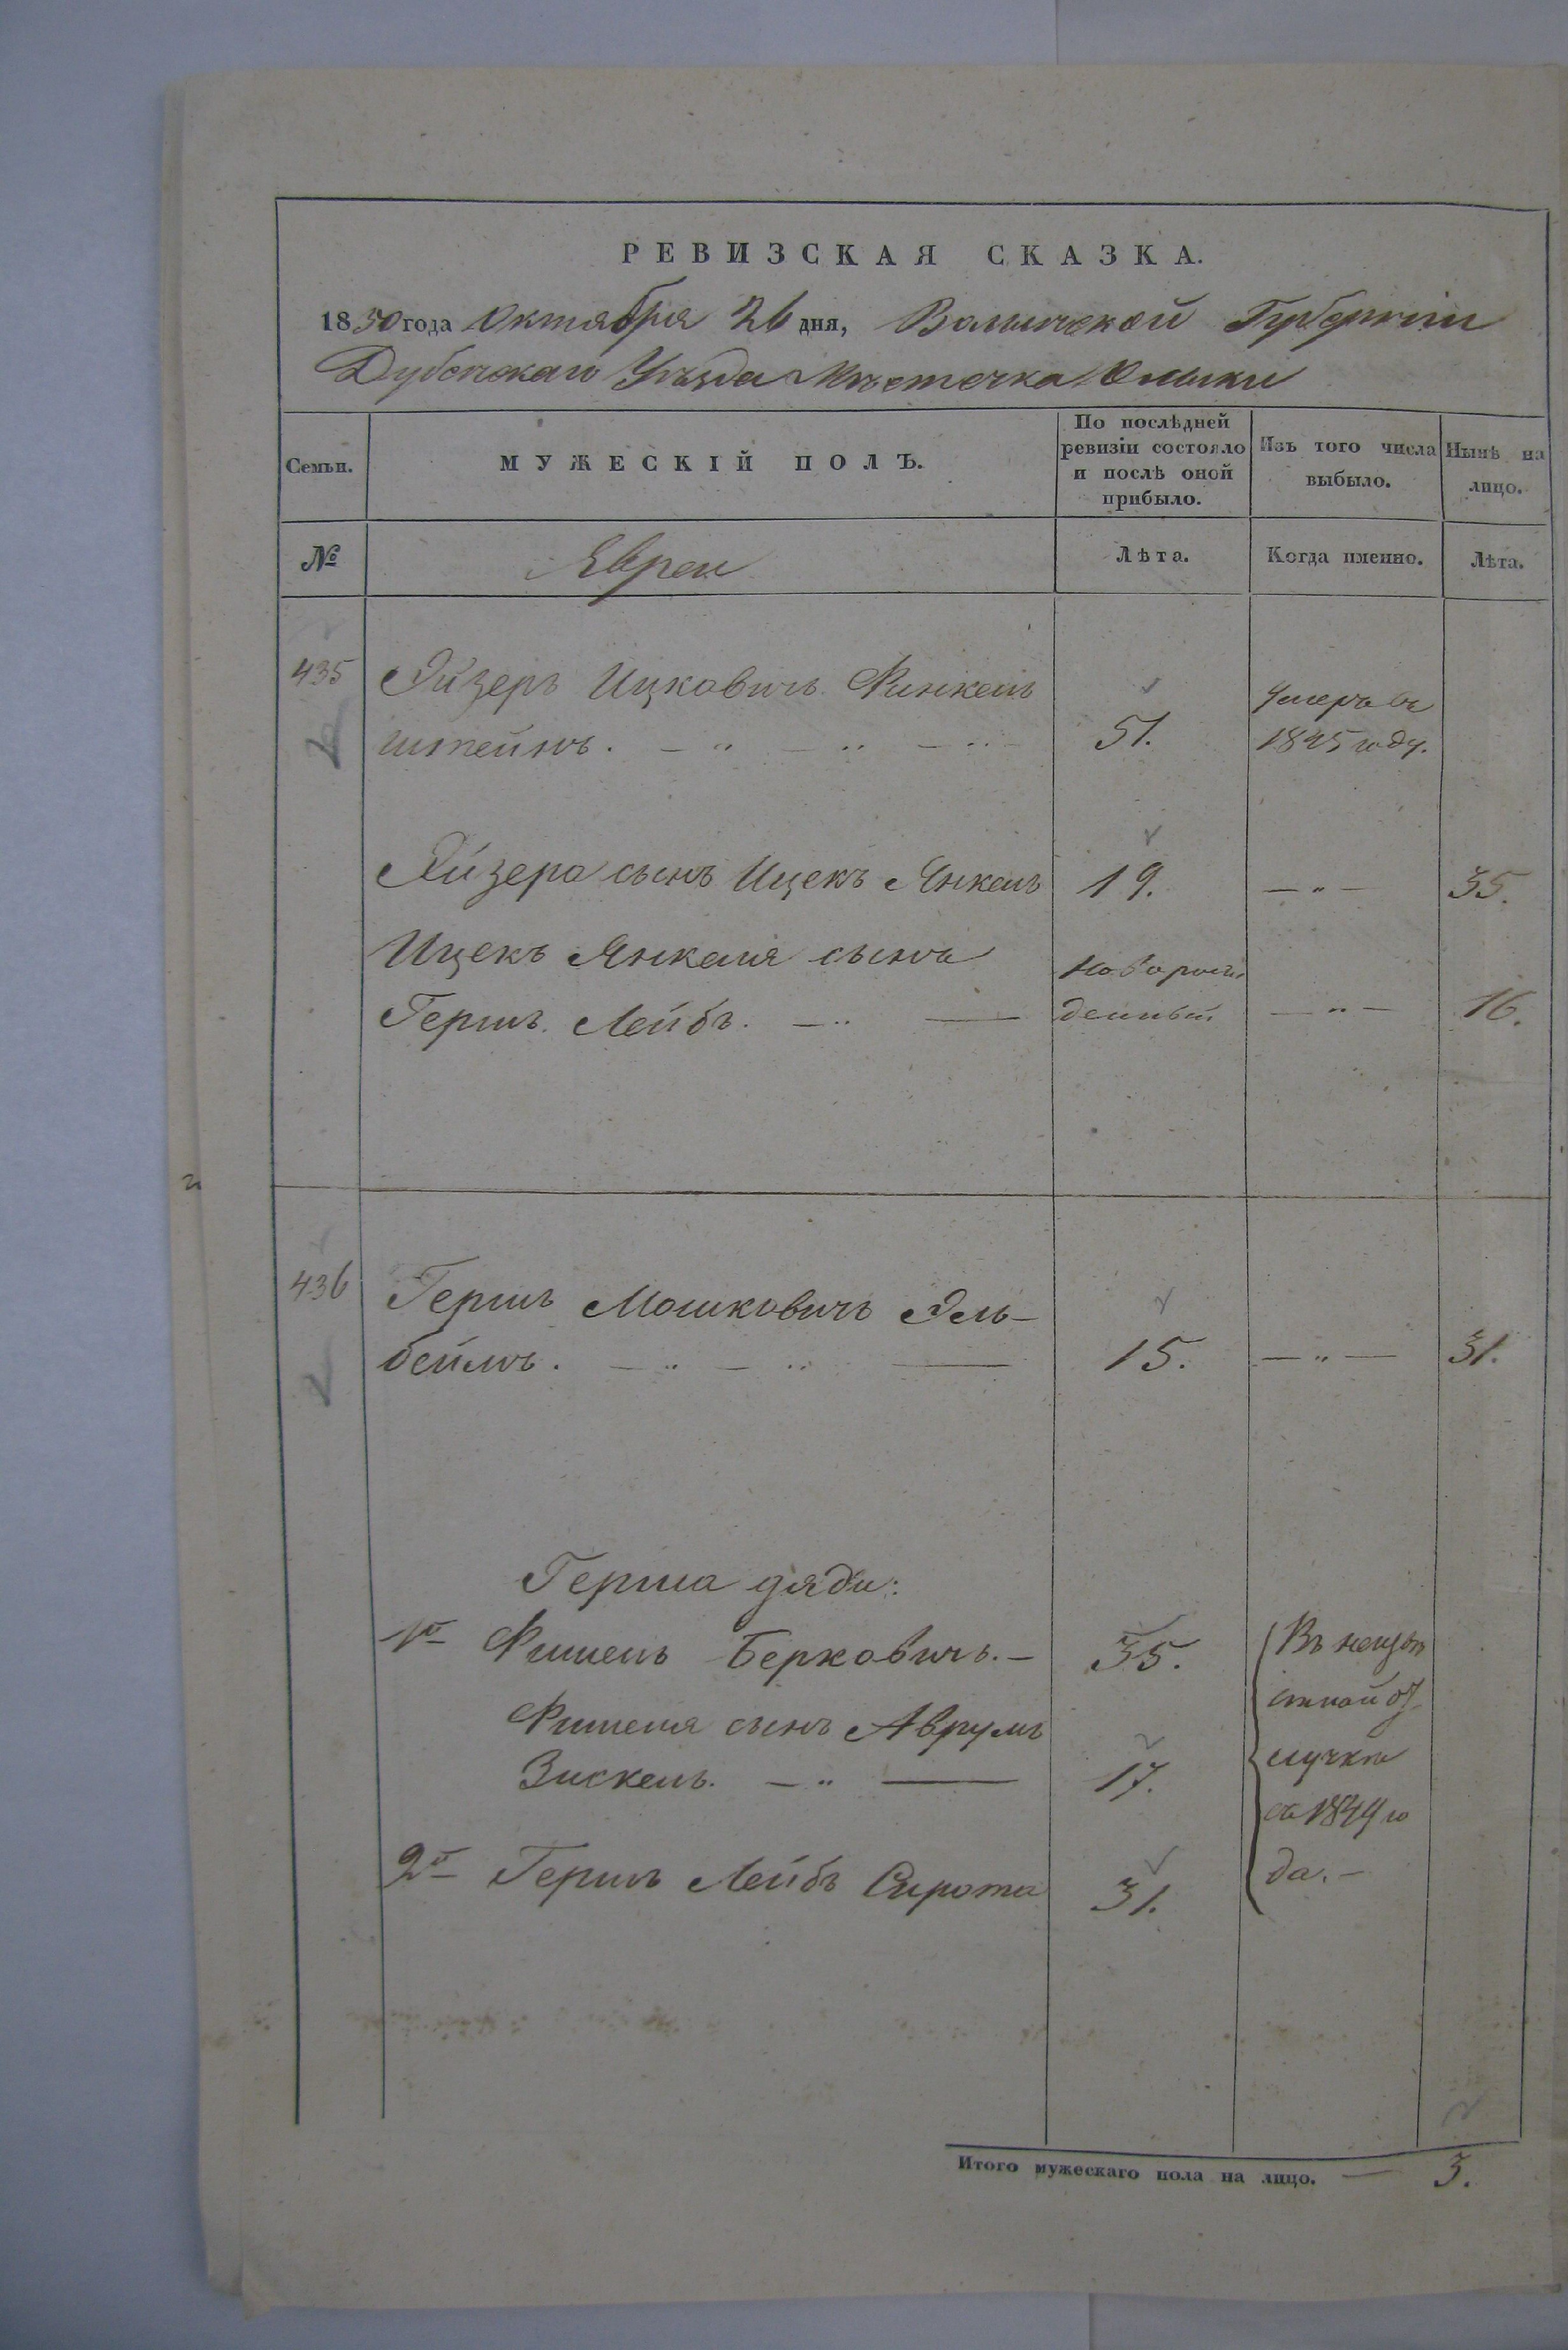 РЕВИЗСКАЯ СКАЗКА.
1850 года Октября 26 дня, Волынской Губернiи
Дубенскаго Уѣзда Мѣстечка Олыки
Семьи. МУЖЕСКIЙ ПОЛЪ. По послѣдней ревизiи состояло и послѣ оной прибыло. Изъ того числа выбыло. Нынѣ на лицо.
№ Евреи Лѣта. Когда именно. Лѣта.
435 Эйзеръ Ицковичъ Финкель
штейнъ. 51. Умеръ въ 1845 году.
Эйзера сынъ Ицекъ Янкель 19. — " — 35.
Ицекъ Янкеля сынъ
Гершъ Лейбъ. — " — новорож
денный — " — 16.
436 Гершъ Мошковичъ Эль-
беймъ. 15. — " — 31.
Герша дяди:
1й Фишель Берковичъ. — 35. Въ неизвѣ
стной от
Фишеля сынъ Аврумъ
Зискель. — " — 17. лучкѣ
съ 1849 го
2й Гершъ Лейбъ Сирота 31. да. —
Итого мужескаго пола на лицо. — 3.